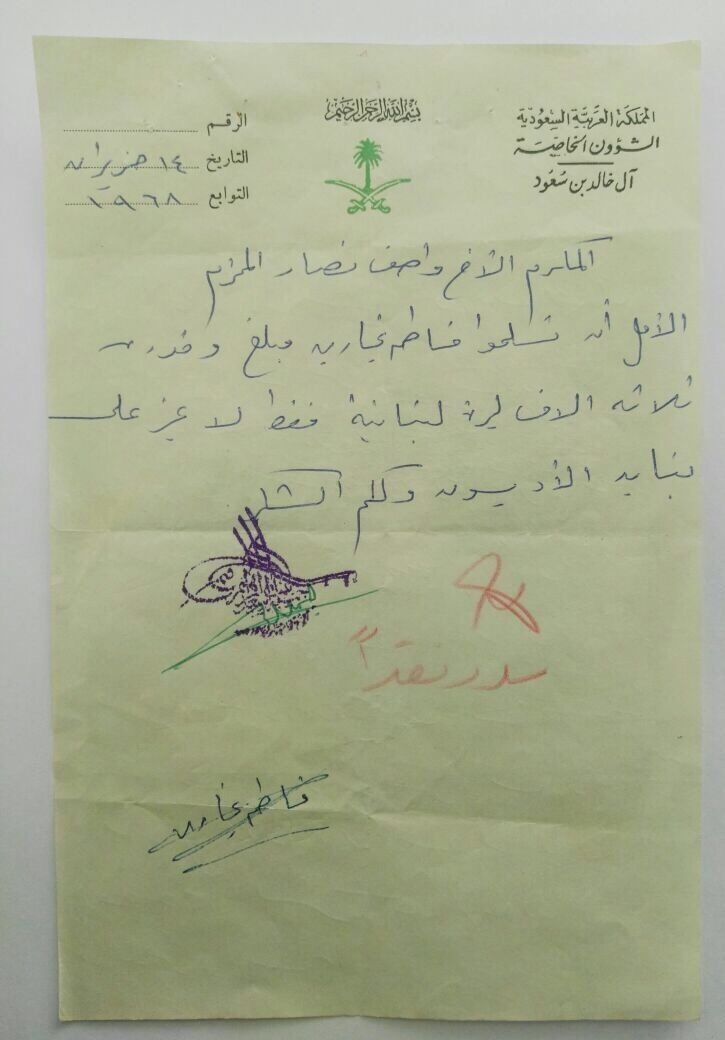 بسم الله الرحمن الرحيم
المملكة العربية السعودية
الشؤون الخاصة
آل خالد بن سعود
الرقم
التاريخ ١٤ حزيران
التوابع ١٩٦٨
المكرم الأخ واصف نصار المحترم
الأمل أن تسلموا فاطمة نجارين مبلغ وقدره
ثلاثة الاف ليرة لبنانية فقط لا غير على
الأديسون ولكم الشكر
نقداً
فاطمة نجارين